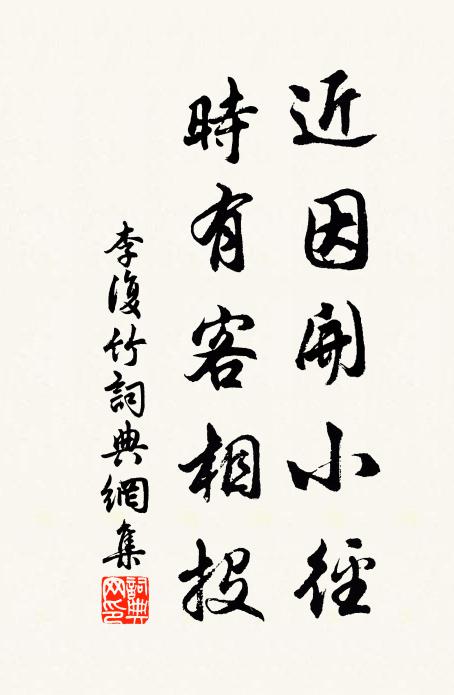 近因開小徑
時有客相投
李復竹詞典網集
詞典网印